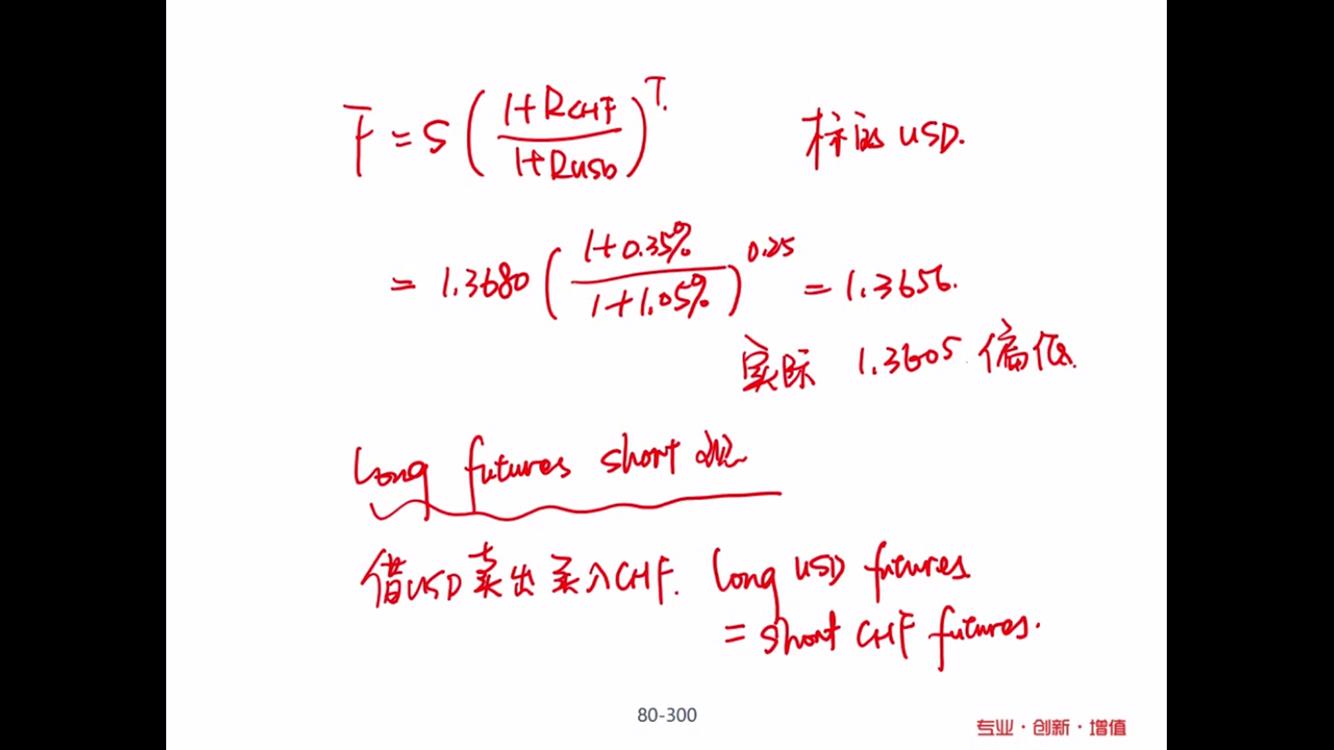 F = S ( (1+R_CHF) / (1+R_USD) )^T. 标的 USD.
= 1.3680 ( (1+0.35%) / (1+1.05%) )^0.25 = 1.3656.
实际 1.3605 偏低.
Long futures short 现
借USD卖出买入CHF. Long USD futures
= short CHF futures.
80-300
专业·创新·增值